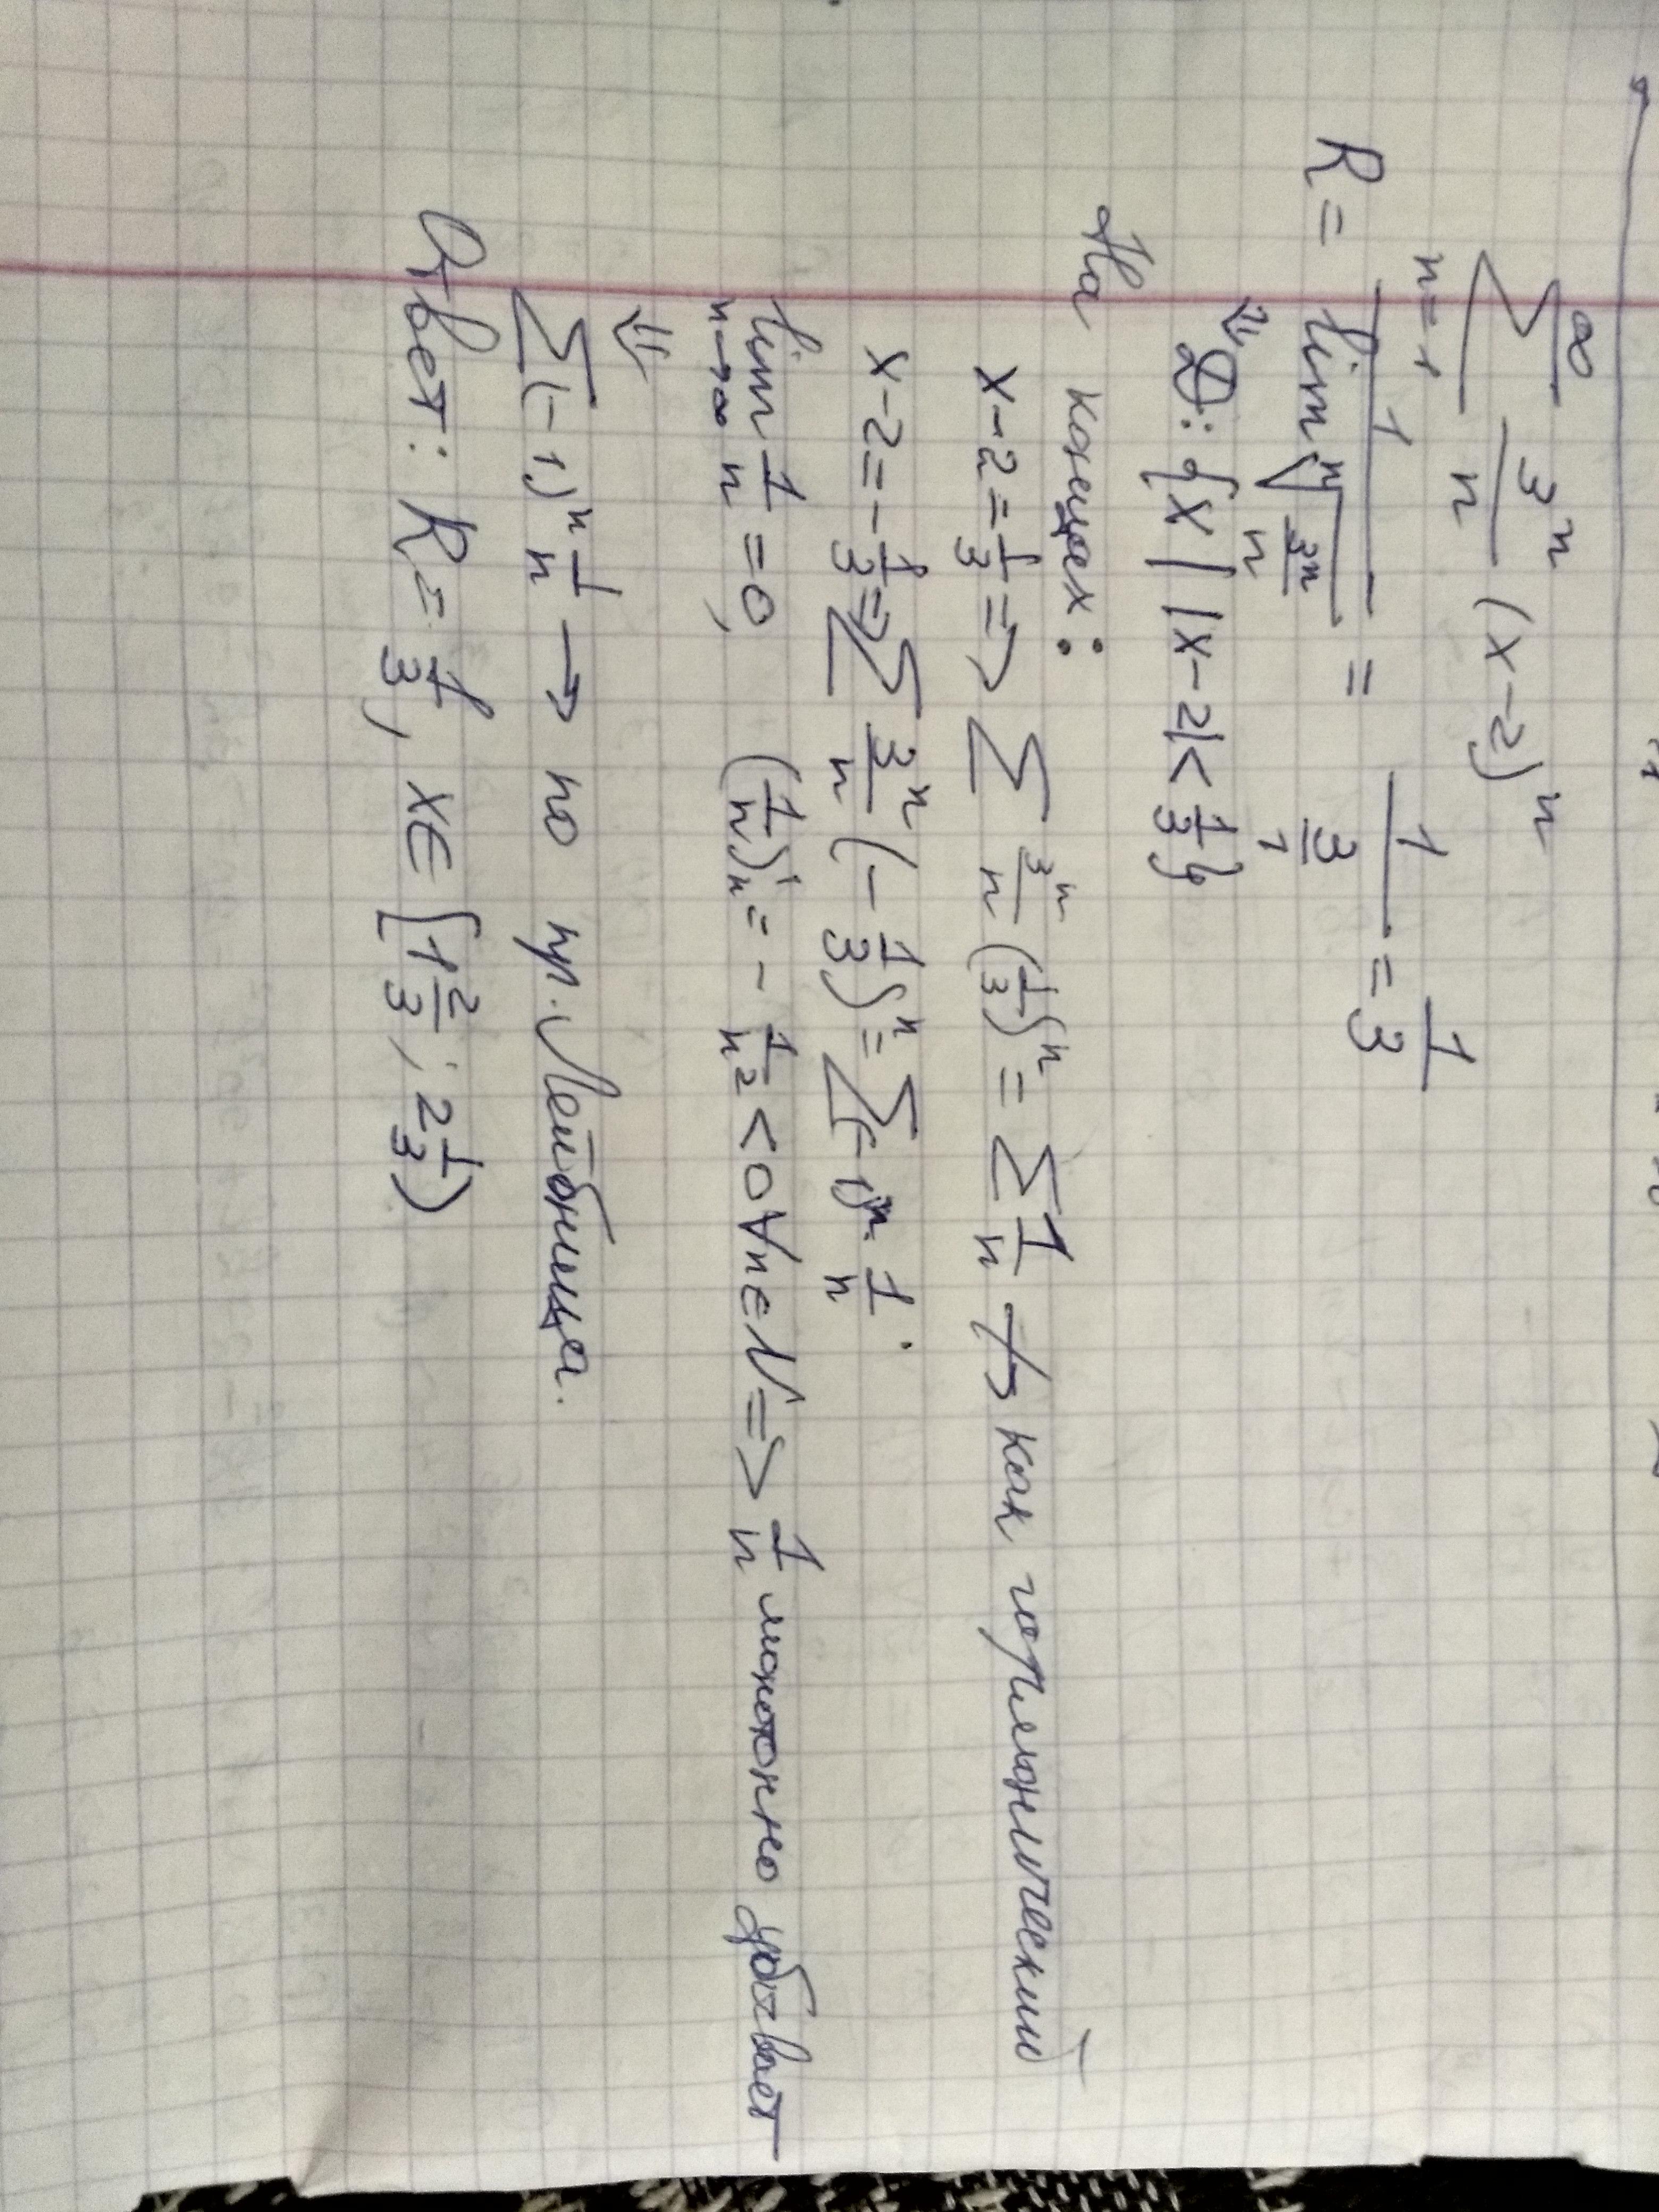 ∞
∑ 3ⁿ/n (x-2)ⁿ
n=1
R = 1/(lim ⁿ√(3ⁿ/n)) = 1/(3/1) = 1/3
⇓
D: {x | |x-2|< 1/3}
На концах:
x-2=1/3 => ∑ 3ⁿ/n (1/3)ⁿ = ∑ 1/n ↛ как гармонический
x-2=-1/3 => ∑ 3ⁿ/n (-1/3)ⁿ = ∑(-1)ⁿ · 1/n.
lim 1/n = 0, (1/n)'ₙ = - 1/n² < 0 ∀n∈N => 1/n монотонно убывает
n→∞
⇓
∑(-1)ⁿ 1/n → по пр. Лейбница.
Ответ: R = 1/3, x∈ [1 2/3; 2 1/3)